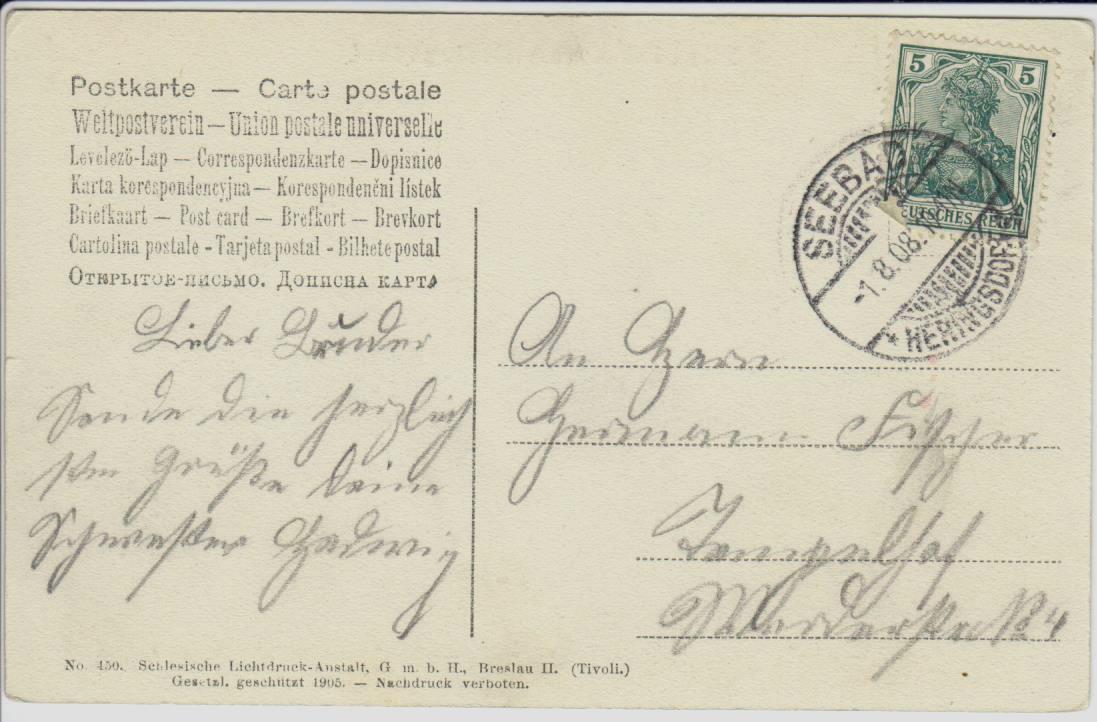 Postkarte — Carte postale
Weltpostverein — Union postale universelle
Levelező-Lap — Correspondenzkarte — Dopisnice
Karta korespondencyjna — Korespondenčni lístek
Briefkaart — Post card — Brefkort — Brevkort
Cartolina postale - Tarjeta postal - Bilhete postal
Открытое-письмо. Дописна карта
5 5
DEUTSCHES REICH
SEEBAD
-1.8.08.
* HERINGSDORF
Lieber Bruder
Sende die herzlich
sten Grüße deine
Schwester Hedwig
An Herrn
Hermann Fischer
Tempelhof
No. 450. Schlesische Lichtdruck-Anstalt, G. m. b. H., Breslau II. (Tivoli.)
Gesetzl. geschützt 1905. — Nachdruck verboten.